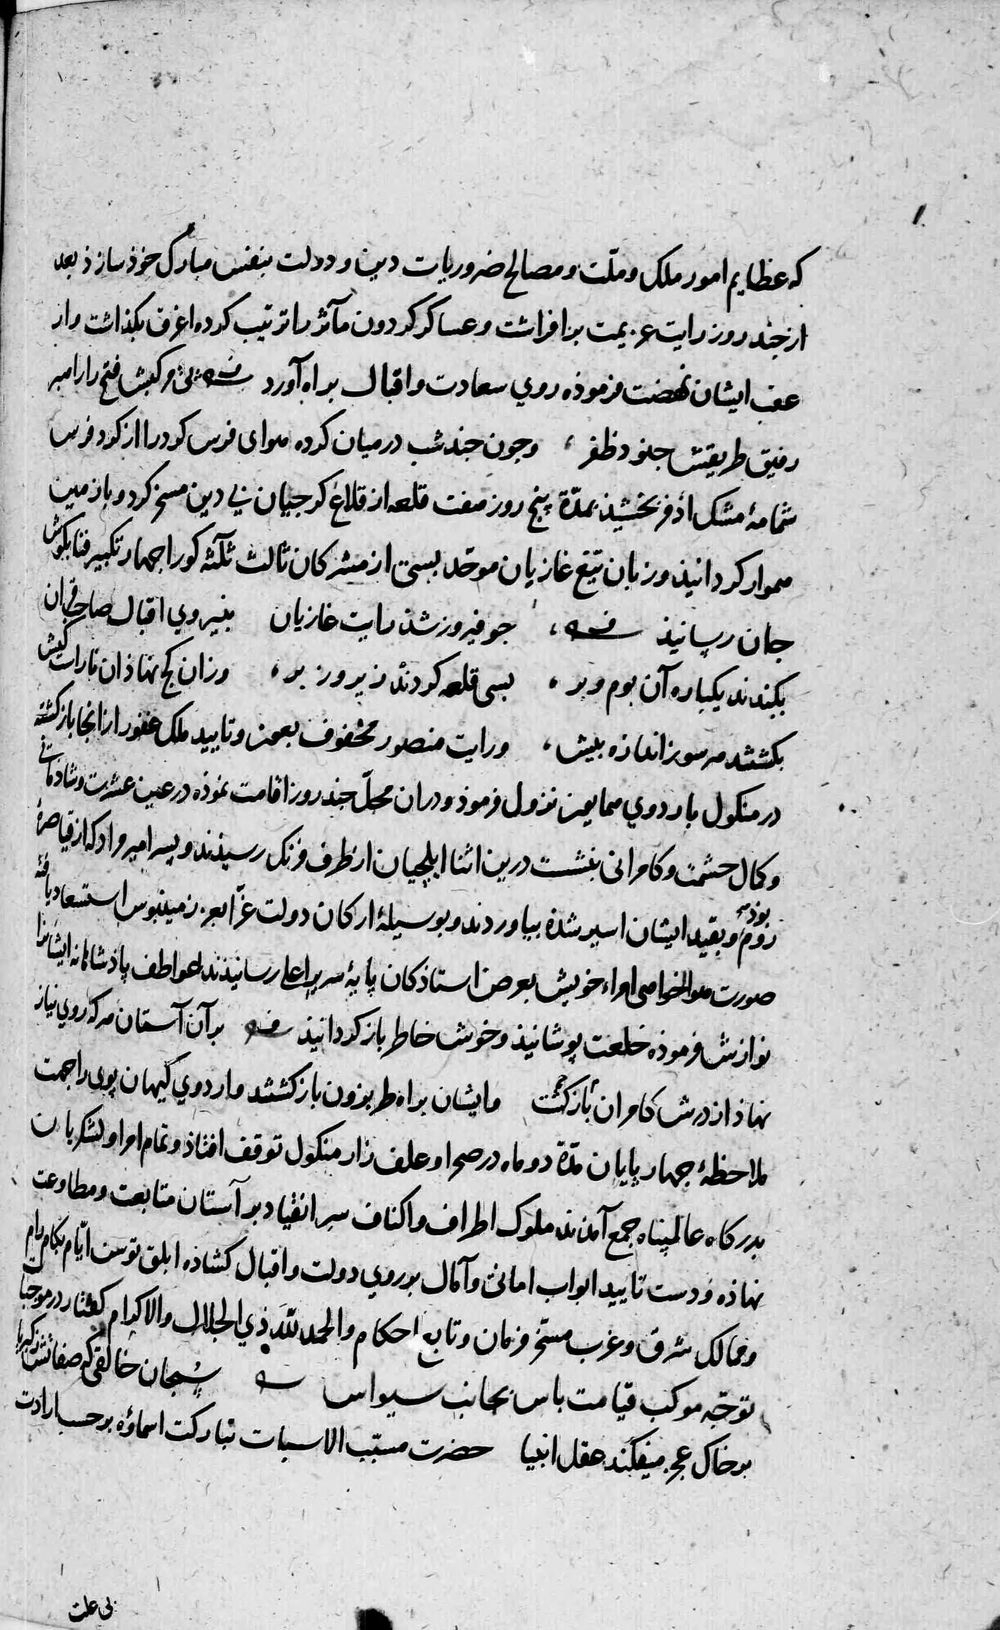 که عظایم امور ملک و ملّت و مصالح ضروریات دین و دولت بنفس مبارک خوذ سازذ بعد
از چند روز رایت عزیمت برافراشت و عساکر کردون مآثر را ترتیب کرده اغرق بکذاشت و از
عقب ایشان نهضت فرموذه روي سعادت و اقبال براه آورد فتح را رامبر
رفیق طریقش جنود ظفر وجون جند شب درمیان کرده
شمامهٔ مشک اذفر بخشیذ بمدّة پنج روز هفت قلعه از قلاع کرجیان بی دین مسخر کرد و با زمین
هموار کردانیذ و زبان تیغ غازیان موحّد بسی از مشرکان ثالث ثلثه کو را جهار تکبیر فنا بکوش
جان رسانیذ جو فیروز شذ رایت غازیان بنیروي اقبال صاحب قران
بکندند یکباره آن بوم و بر بسی قلعه کردند زیر و زبر وزان کج نهاذان تاراک کیش
بکشتند هر سو ز اندازه بیش ورایت منصور محفوف بعون و تایید ملک غفور از انجا بازکشته
در منکول باردوي همایون نزول فرموذ و دران محلّ جند روز اقامت نموذه در عین عشرت و شاذمانی
و کمال حشمت و کامرانی بنشست درین اثنا ایلچیان از طرف فرنک رسیذند و پسر امیر مراد که از قیاصرهٔ
روم بوذه و بقید ایشان اسیر شذه بیاوردند و بوسیلهٔ ارکان دولت غرّا بعز زمینبوس استسعاد یافته
صورت هوالخواهی امراء خویش بعرض استاذکان پایهٔ سریر اعلی رسانیذند عواطف پاذشاهانه ایشانرا
نوازش فرموذه خلعت پوشانیذ و خوش خاطر بازکردانیذ بر آن آستان هرکه روی نیاز
نهاذ از درش کامران بازکشت و ایشان براه طربزون بازکشتند و اردوي کیهان پوی را جهت
ملاحظهٔ جهار پایان مدّة دو ماه در صحرا و علف زار منکول توقف افتاذ و تمام امرا و لشکریان
بدرکاه عالمپناه جمع آمذند ملوک اطراف و اکناف سر انقیاد بر آستان متابعت و مطاوعت
نهاذه و دست تایید ابواب امانی و آمال بر روي دولت و اقبال کشاذه ابلق توسن ایّام بکام رام
و ممالک شرق و غرب مسخر فرمان و تابع احکام والحمد لله ذي الجلال والاکرام کفتار در موجبات
توجّه موکب قیامت باس بجانب سیواس سُبحان خالقی که صفاتش ز کبریا
بر خاک عجز میفکند عقل انبیا حضرت مسبّب الاسباب تبارکت اسماؤه بر حسب ارادت
بی علت